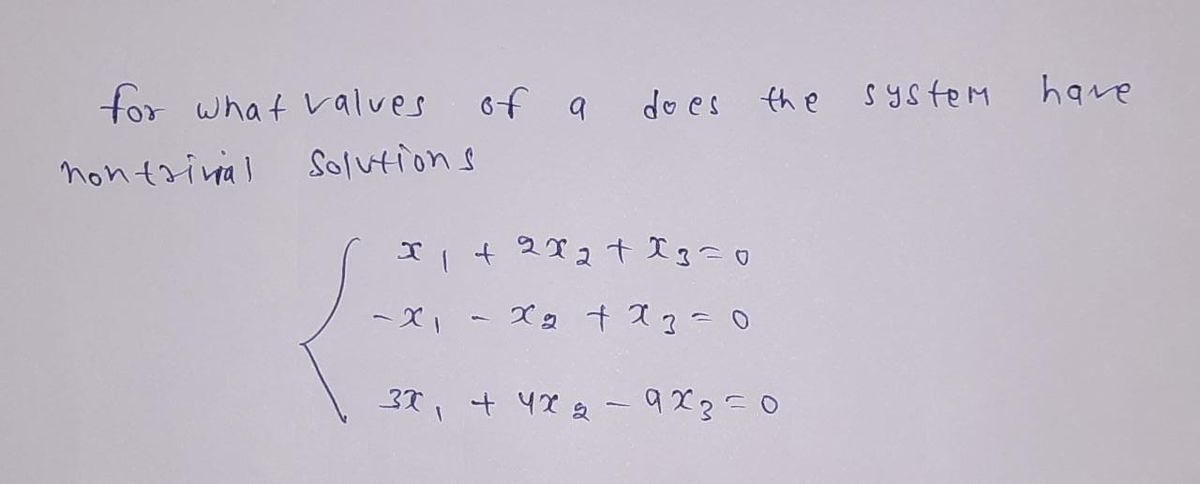 for what values of a does the system have
nontrivial solutions
x₁ + 2x₂ + x₃ = 0
-x₁ - x₂ + x₃ = 0
3x₁ + 4x₂ - ax₃ = 0